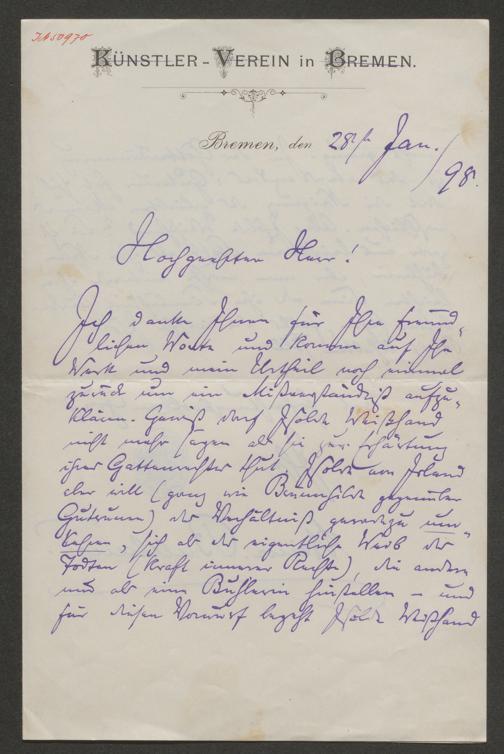 KÜNSTLER-VEREIN in BREMEN.
Bremen, den 28t Jan. / 98.
Hochgeehrter Herr!
Ich danke Ihnen für Ihre freund-
lichen Worte und komme auf Ihr
Werk und mein Urtheil noch einmal
zurück um ein Mißverständniß aufzu-
klären. Gewiß darf Isolde Weißhand
nicht mehr sagen als sie zur Erhärtung
ihrer Gattenrechte thut. Isolde von Irland
aber will (ganz wie Brünnhilde gegenüber
Gutrune) das Verhältniß geradezu um-
kehren, sich als das eigentliche Weib des
Todten (kraft innerer Rechte), die andere
nur als eine Buhlerin hinstellen – und
für diesen Vorwurf besitzt Isolde Weißhand